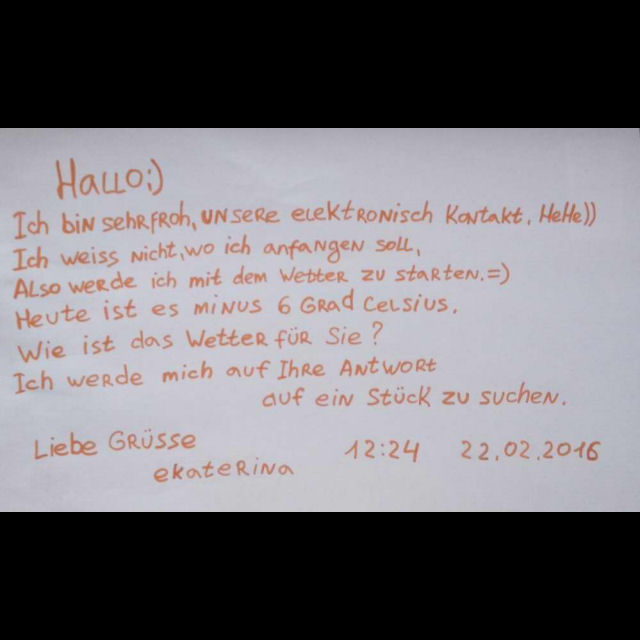 Hallo:)
Ich bin sehr froh, unsere elektronisch Kontakt. HeHe))
Ich weiss nicht, wo ich anfangen soll,
Also werde ich mit dem Wetter zu starten.=)
Heute ist es minus 6 Grad Celsius.
Wie ist das Wetter für Sie?
Ich werde mich auf Ihre Antwort
auf ein Stück zu suchen.
Liebe Grüsse 12:24 22.02.2016
ekaterina